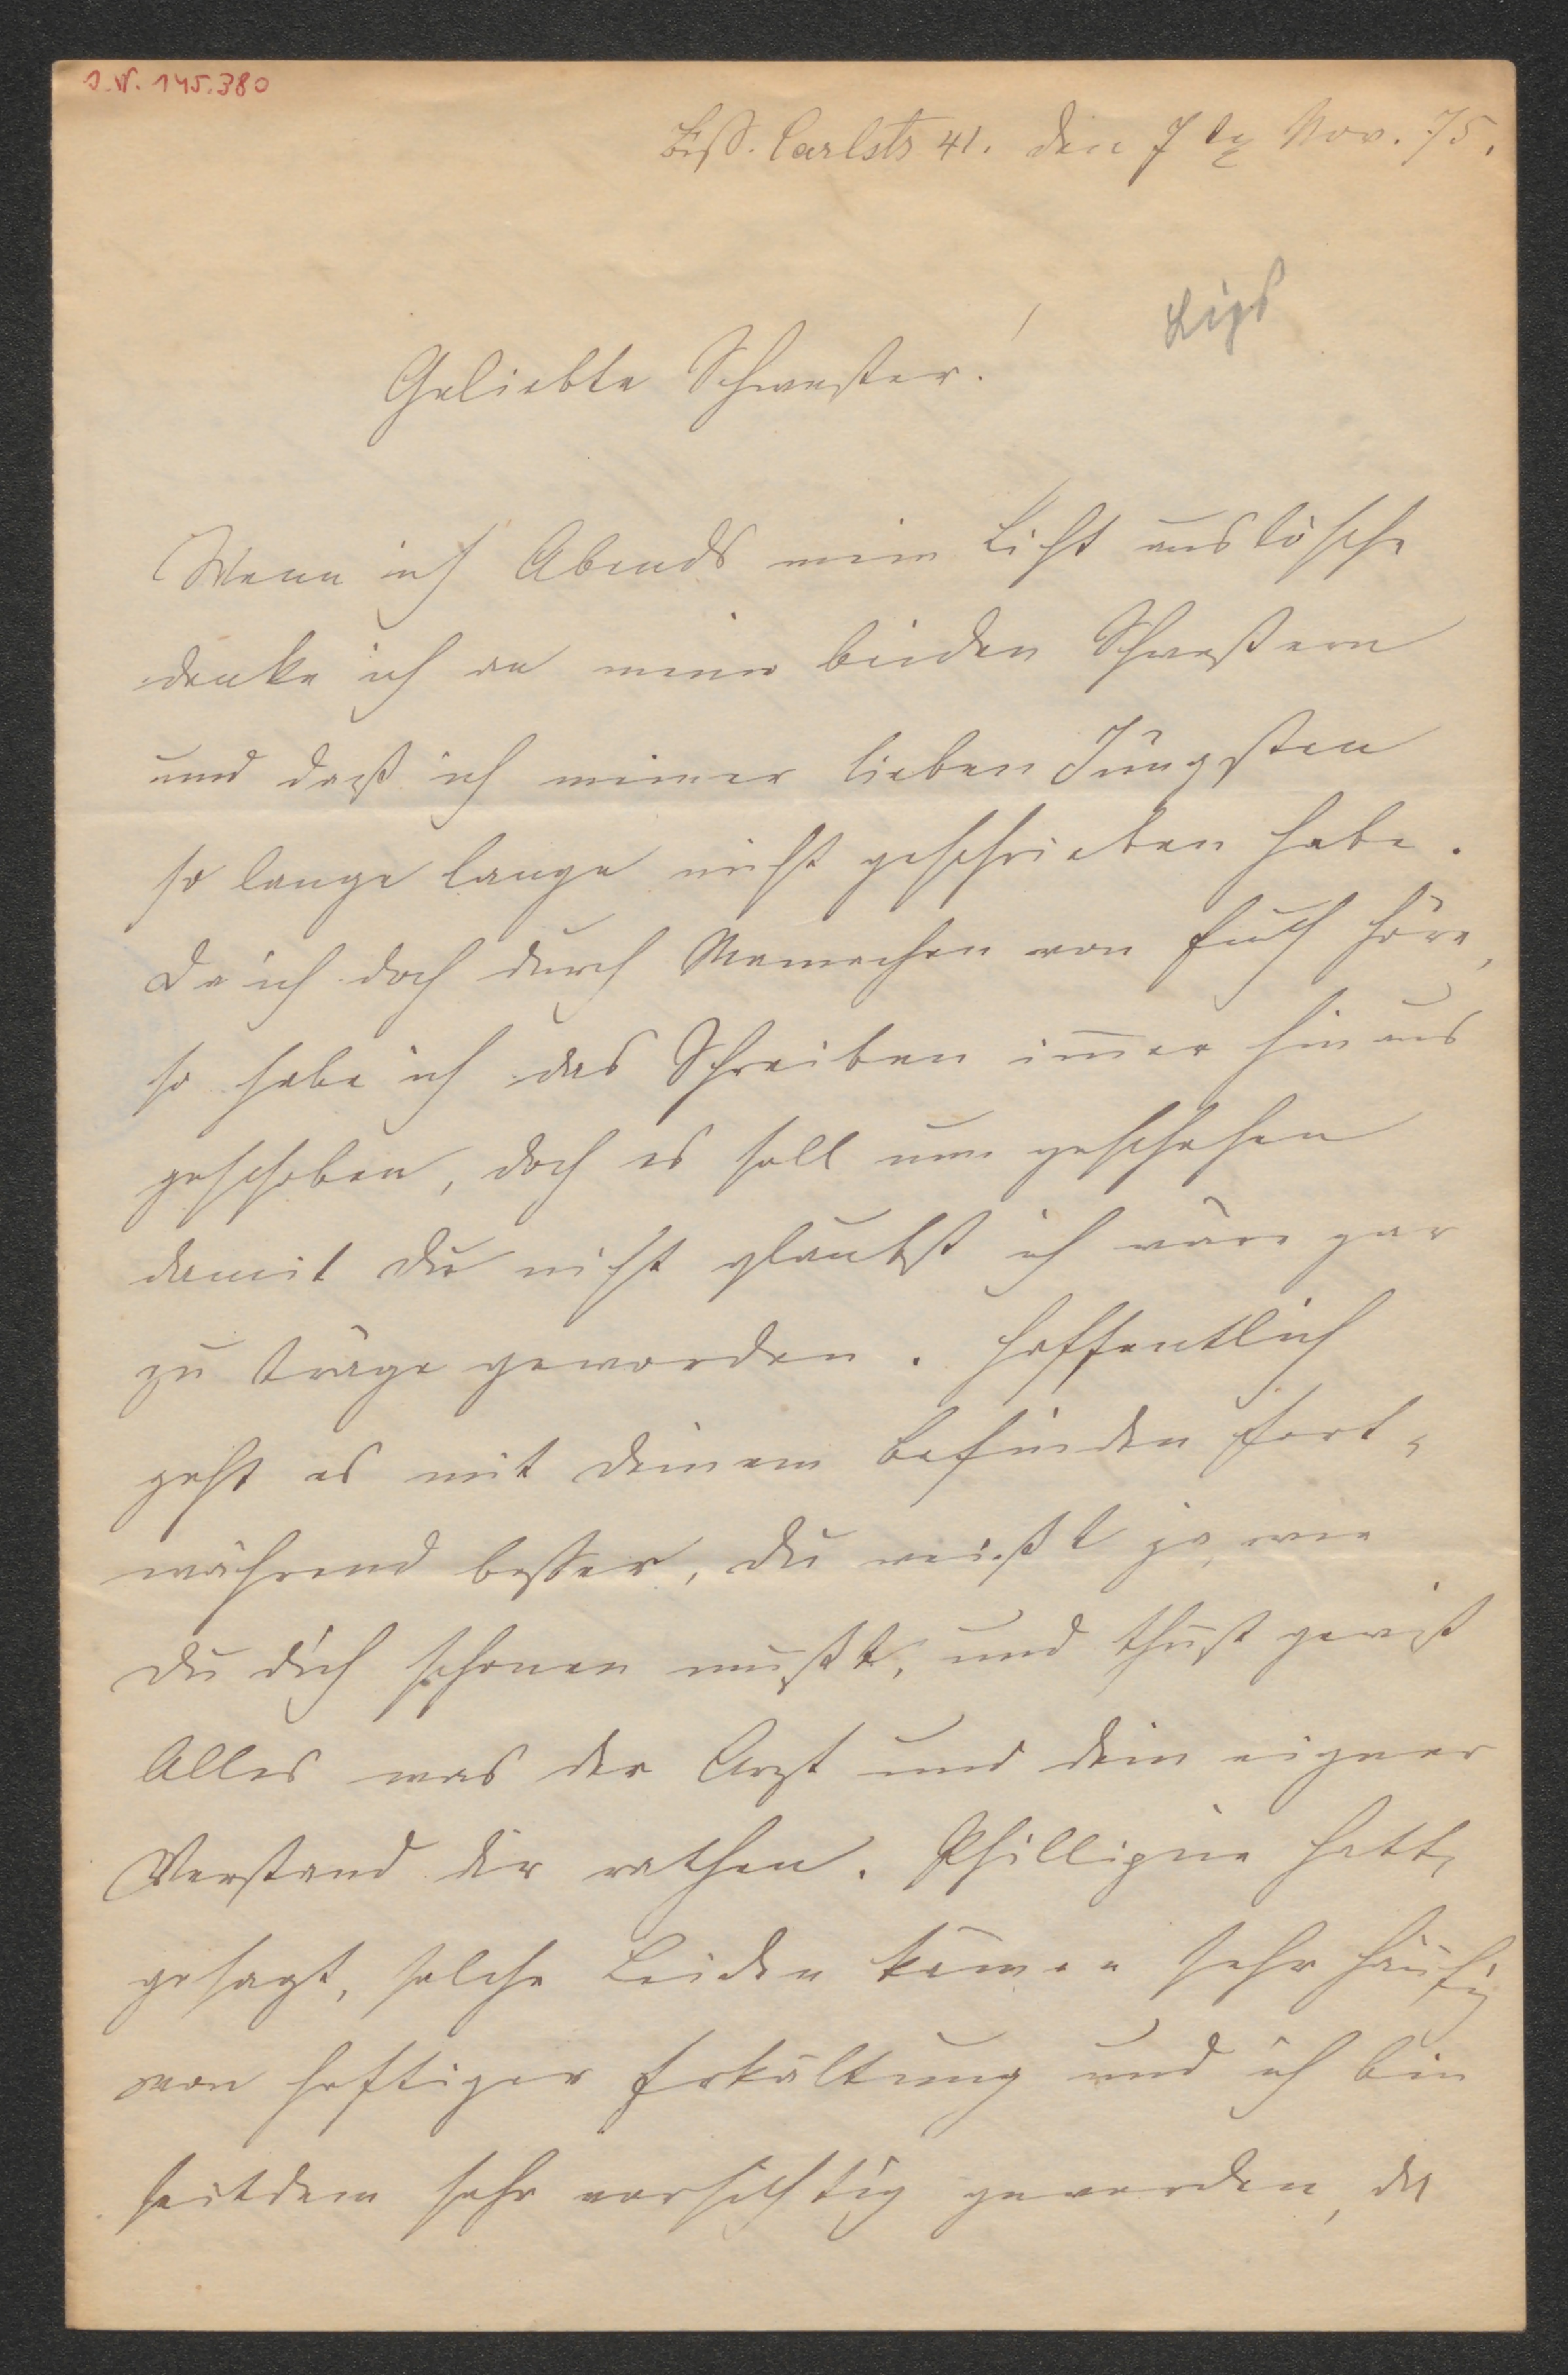 J.N. 145.380
Carlstr 41. den 7 tg Nov. 75.
Geliebte Schwester!
Wenn ich Abends mein Licht auslösche
denke ich an meine beiden Schwestern
und daß ich meiner lieben Jüngsten
so lange lange nicht geschrieben habe.
Da ich doch durch Mamachen von Euch höre,
so habe ich das Schreiben im̅er hinaus
geschoben, doch es soll nun geschehen
damit du nicht glaubst ich wäre gar
zu träge geworden. Hoffentlich
geht es mit deinem Befinden fort-
während besser, du weißt ja, wie
du dich schonen mußt, und thust gewiß
Alles was der Arzt und dein eigner
Verstand dir rathen. Phillipine hatte
gesagt, solche Leiden kämen sehr häufig
von heftiger Erkältung und ich bin
seitdem sehr vorsichtig geworden, da